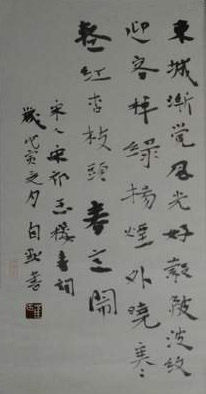 東城漸覺風光好縠皺波紋
迎客棹綠楊煙外曉寒
輕紅杏枝頭春意鬧
宋人宋祁玉樓春詞
歲戊寅之夕自書